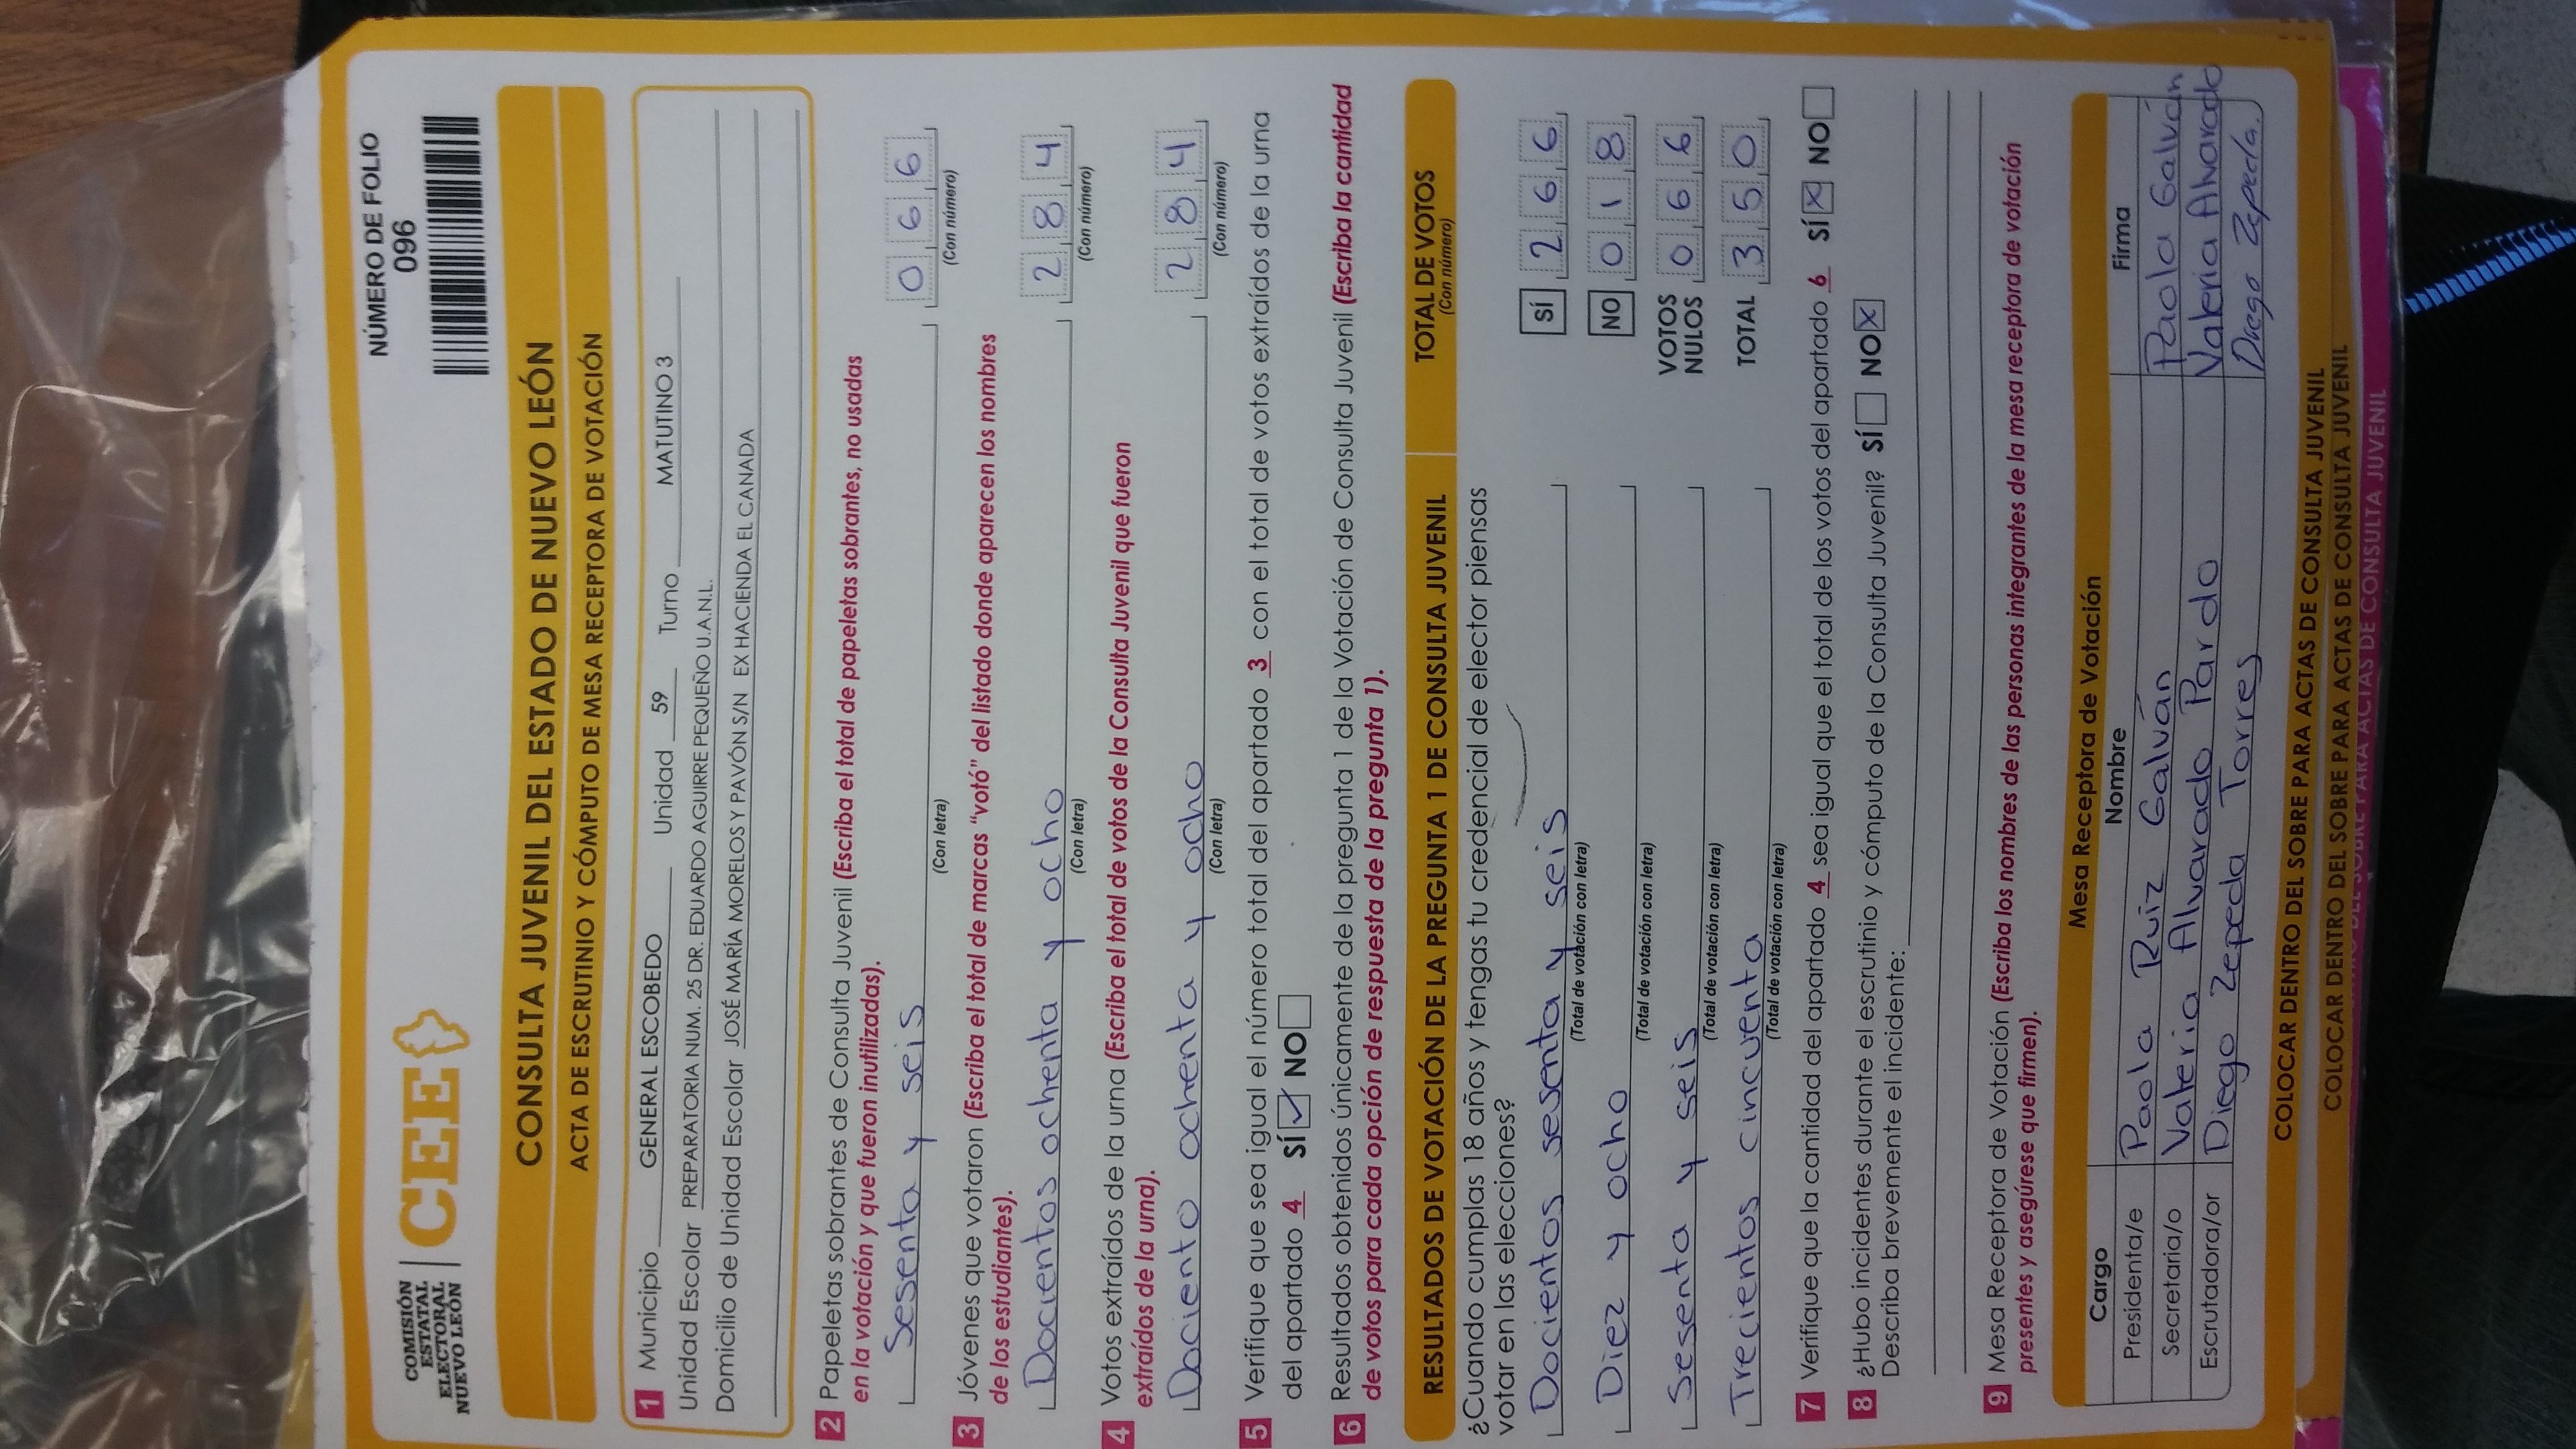 COMISIÓN
ESTATAL
ELECTORAL
NUEVO LEÓN
CEE
NÚMERO DE FOLIO
096
CONSULTA JUVENIL DEL ESTADO DE NUEVO LEÓN
ACTA DE ESCRUTINIO Y CÓMPUTO DE MESA RECEPTORA DE VOTACIÓN
1 Municipio GENERAL ESCOBEDO Unidad 59 Turno MATUTINO 3
Unidad Escolar PREPARATORIA NUM. 25 DR. EDUARDO AGUIRRE PEQUEÑO U.A.N.L.
Domicilio de Unidad Escolar JOSÉ MARÍA MORELOS Y PAVÓN S/N EX HACIENDA EL CANADA
2 Papeletas sobrantes de Consulta Juvenil (Escriba el total de papeletas sobrantes, no usadas
en la votación y que fueron inutilizadas).
Sesenta y seis 0 6 6
(Con letra) (Con número)
3 Jóvenes que votaron (Escriba el total de marcas "votó" del listado donde aparecen los nombres
de los estudiantes).
Docientos ochenta y ocho 2 8 4
(Con letra) (Con número)
4 Votos extraídos de la urna (Escriba el total de votos de la Consulta Juvenil que fueron
extraídos de la urna).
Dociento ochenta y ocho 2 8 4
(Con letra) (Con número)
5 Verifique que sea igual el número total del apartado 3 con el total de votos extraídos de la urna
del apartado 4 SÍ ✓ NO
6 Resultados obtenidos únicamente de la pregunta 1 de la Votación de Consulta Juvenil (Escriba la cantidad
de votos para cada opción de respuesta de la pregunta 1).
RESULTADOS DE VOTACIÓN DE LA PREGUNTA 1 DE CONSULTA JUVENIL TOTAL DE VOTOS
(Con número)
¿Cuando cumplas 18 años y tengas tu credencial de elector piensas
votar en las elecciones?
Docientos sesenta y seis SÍ 2 6 6
(Total de votación con letra)
Diez y ocho NO 0 1 8
(Total de votación con letra)
Sesenta y seis VOTOS NULOS 0 6 6
(Total de votación con letra)
Trecientos cincuenta TOTAL 3 5 0
(Total de votación con letra)
7 Verifique que la cantidad del apartado 4 sea igual que el total de los votos del apartado 6 SÍ X NO
8 ¿Hubo incidentes durante el escrutinio y cómputo de la Consulta Juvenil? SÍ NO X
Describa brevemente el incidente:
9 Mesa Receptora de Votación (Escriba los nombres de las personas integrantes de la mesa receptora de votación
presentes y asegúrese que firmen).
Mesa Receptora de Votación
Cargo Nombre Firma
Presidenta/e Paola Ruiz Galván Paola Galván
Secretaria/o Valeria Alvarado Pardo Valeria Alvarado
Escrutadora/or Diego Zepeda Torres Diego Zepeda.
COLOCAR DENTRO DEL SOBRE PARA ACTAS DE CONSULTA JUVENIL
COLOCAR DENTRO DEL SOBRE PARA ACTAS DE CONSULTA JUVENIL
DEL SOBRE PARA ACTAS DE CONSULTA JUVENIL